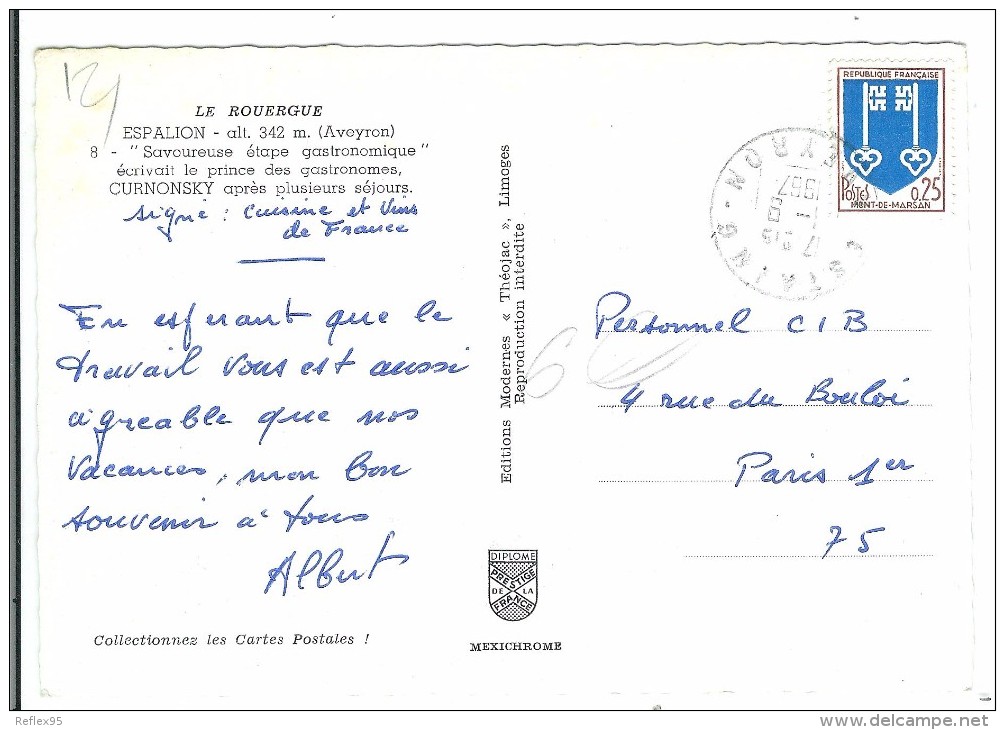 12
LE ROUERGUE
ESPALION - alt. 342 m. (Aveyron)
8 - "Savoureuse étape gastronomique"
écrivait le prince des gastronomes,
CURNONSKY après plusieurs séjours.
signé : Cuisine et Vins
de France
En espérant que le
travail vous est aussi
agréable que nos
vacances, mon bon
souvenir à tous
Albert
Collectionnez les Cartes Postales !
Editions Modernes « Théojac », Limoges
Reproduction interdite
DIPLOME
PRESTIGE
DE LA
FRANCE
MEXICHROME
REPUBLIQUE FRANÇAISE
POSTES 0,25
MONT-DE-MARSAN
ESTAING - AVEYRON
1967
Personnel CIB
4 rue du Bouloi
Paris 1er
75
Reflex95
www.delcampe.net